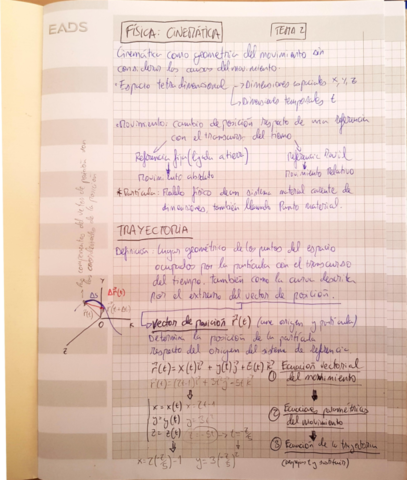 EADS
FÍSICA: CINEMÁTICA
TEMA 2
Cinemática como geometría del movimiento sin
considerar las causas del movimiento.
• Espacio tetradimensional → Dimensiones espaciales x, y, z
→ Dimensión temporal t
• Movimiento: cambio de posición respecto de una referencia
con el transcurso del tiempo
Referencia fija (ligada a tierra)
Referencia móvil
Movimiento absoluto
Movimiento relativo
* Partícula: Modelo físico de un sistema material carente de
dimensiones, también llamada Punto material.
TRAYECTORIA
Definición: Lugar geométrico de los puntos del espacio
ocupados por la partícula con el transcurso
del tiempo. También como la curva descrita
por el extremo del vector de posición.
Vector de posición r(t) (une origen y partícula)
Determina la posición de la partícula
respecto del origen del sistema de referencia
r(t) = x(t)i + y(t)j + z(t)k
① Ecuación vectorial
del movimiento
x = x(t)
y = y(t)
z = z(t)
② Ecuaciones paramétricas
del movimiento
③ Ecuación de la trayectoria
Δr(t)
Δs
r(t)
Y
O
X
Z